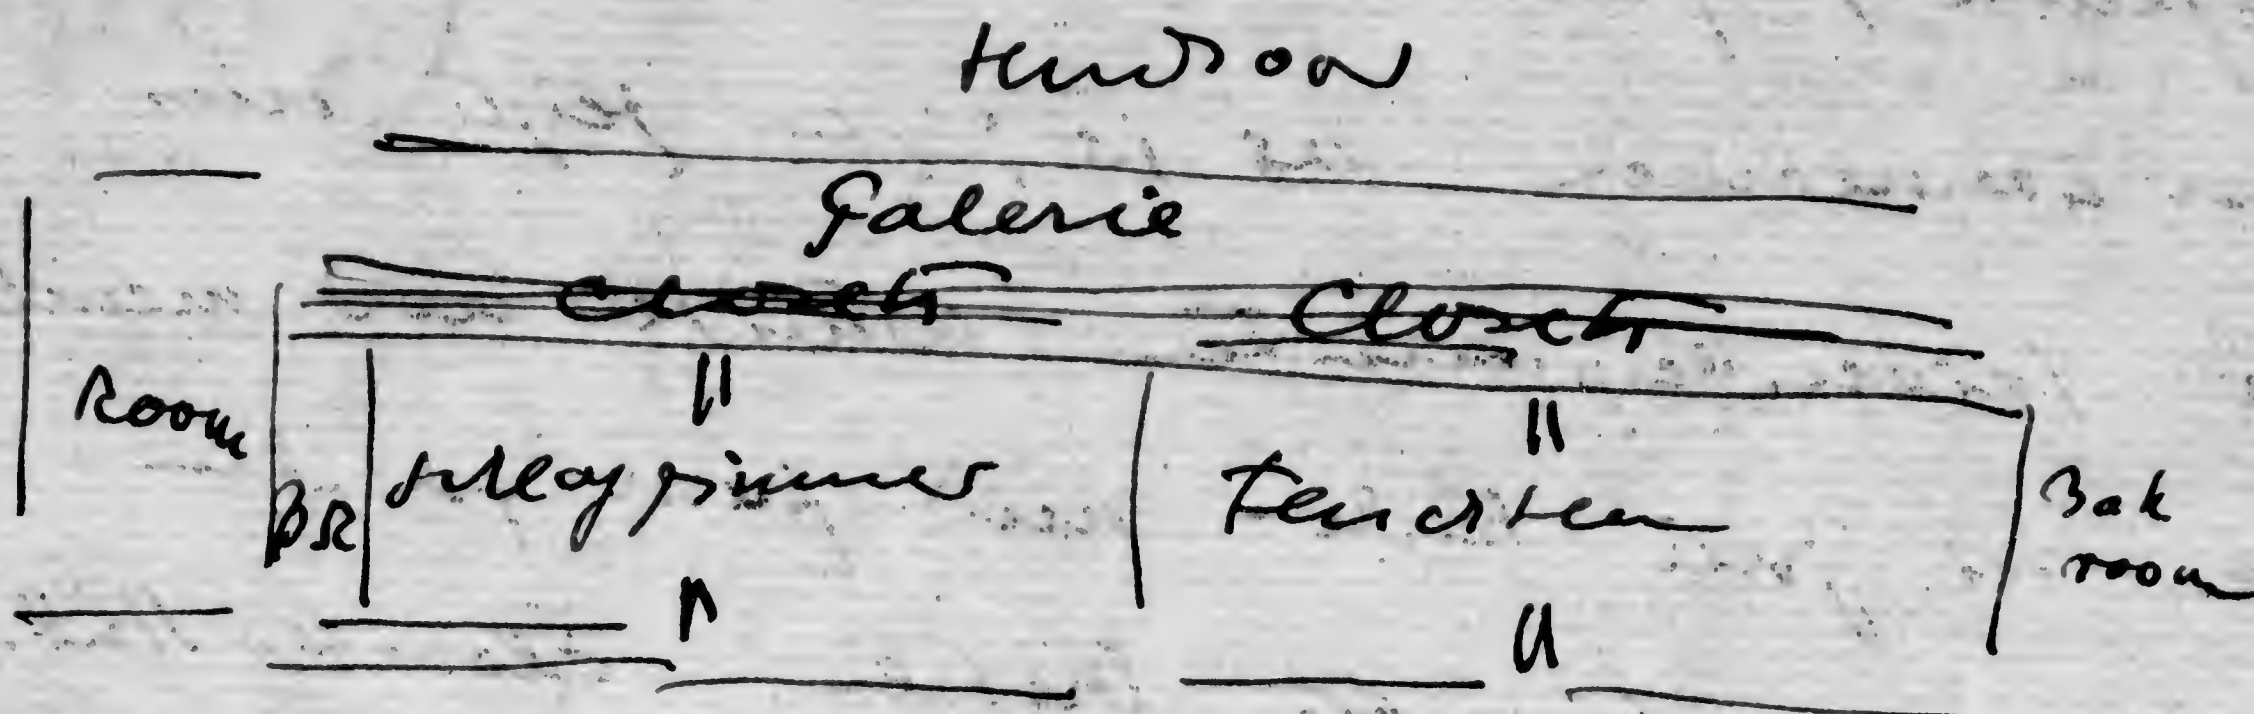 Hudson
Galerie
Closet
Closet
Room
BR
Schlafzimmer
Bak
room